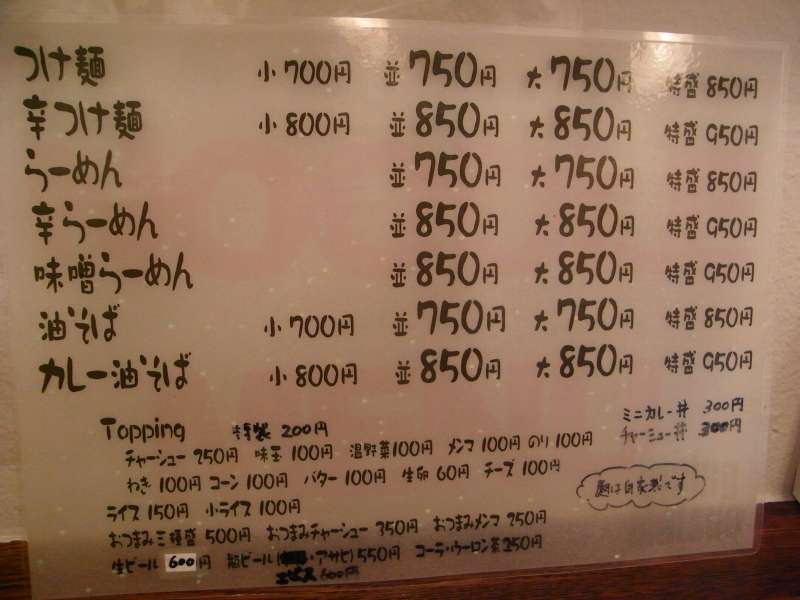 つけ麺 小700円 並750円 大750円 特盛850円
辛つけ麺 小800円 並850円 大850円 特盛950円
らーめん 並750円 大750円 特盛850円
辛らーめん 並850円 大850円 特盛950円
味噌らーめん 並850円 大850円 特盛950円
油そば 小700円 並750円 大750円 特盛850円
カレー油そば 小800円 並850円 大850円 特盛950円
ミニカレー丼 300円
チャーシュー丼 300円
Topping 特製200円
チャーシュー250円 味玉100円 温野菜100円 メンマ100円 のり100円
ねぎ100円 コーン100円 バター100円 生卵60円 チーズ100円
麺は自家製です
ライス150円 小ライス100円
おつまみ三種盛500円 おつまみチャーシュー350円 おつまみメンマ250円
生ビール600円 瓶ビール(・アサヒ)550円 コーラ・ウーロン茶250円
エビス600円